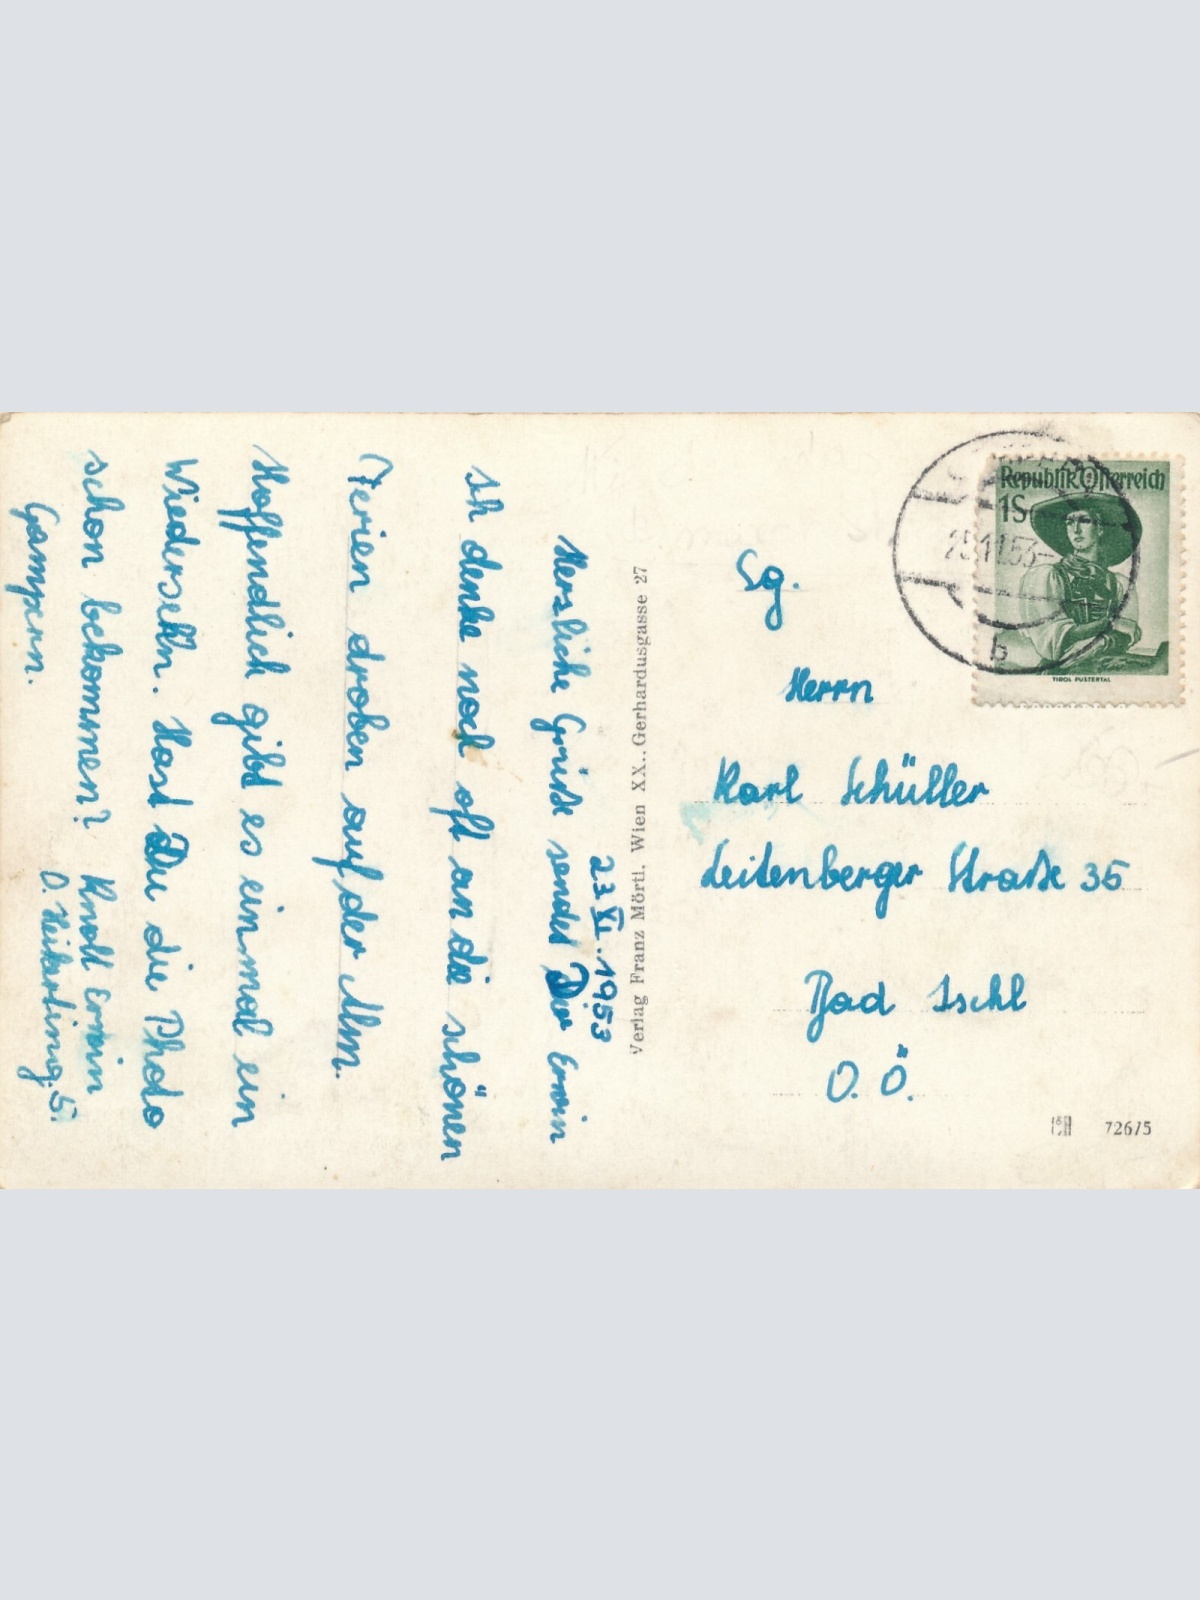 23 XI. 1953
Herzliche Grüße sendet Dir Erwin
Ich denke noch oft an die schönen
Ferien droben auf der Alm.
Hoffendlich gibt es einmal ein
Wiedersehn. Hast Du die Photo
schon bekommen? Knoll Erwin
O. Heikerting. 5.
Gampern.
Verlag Franz Mörtl, Wien XX., Gerhardusgasse 27
Republik Österreich
1S
TIROL PUSTERTAL
25.11.53-
b
Sg.
Herrn
Karl Schüller
Leitenberger Straße 35
Bad Ischl
O. Ö.
726/5